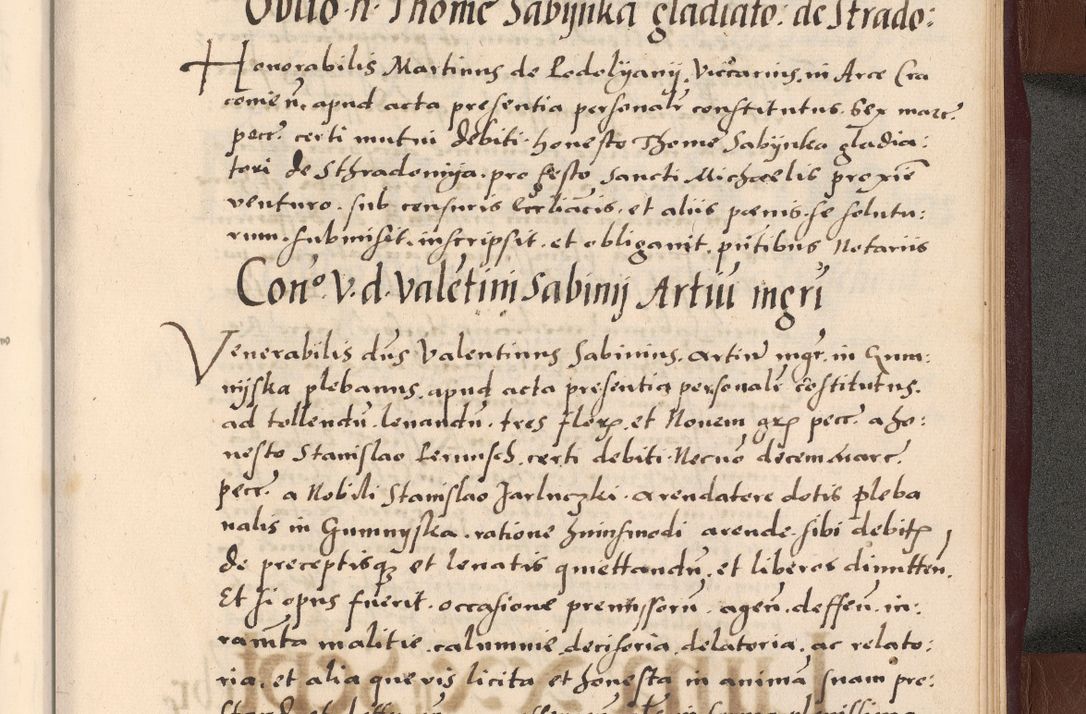 Oblio h Thome Sabynka gladiato: de Strado:
Honorabilis Martinus de Lodolyanÿ, Viccarius in Arce Cra
comieñ, apud acta presentia personalr constitutus. Sex marc.
pecc. certi mutui debiti honesto Thome Sabynka gladia:
tori de Sthradomija. pro festo Sancti Michaelis proxiē
venturo. sub censuris Eccliācis, et aliis pœnis. se solutu:
rum. submisit. inscripsit. et obligauit. pñtibus Notariis
Cono. V. d. Valētini Sabinij Artiū mgri
Venerabilis dñs Valentinus Sabinius. artiū mgr. in Gum:
nÿska plebanus. apud acta presentia personale cōstitutus.
ad tollendū. leuandū. tres flor. et Nouem gr. pecc. a ho:
nesto Stanislao certi debiti. Necnō decem marc.
pecc. a Nobili Stanislao Jarluczki. arendatore dotis pleba
nalis in Gumnyska. ratione huiusmodi arende. sibi debit
de preceptisq et leuatis quiettandū, et liberos dimitten,
Et si opus fuerit. occasione premissorū. ageñ. deffeñ. in
ramta malitie. calumnie. decisoria. delatoria. ac relato:
ria. et alia queuis licita et honesta in animā suam pre: